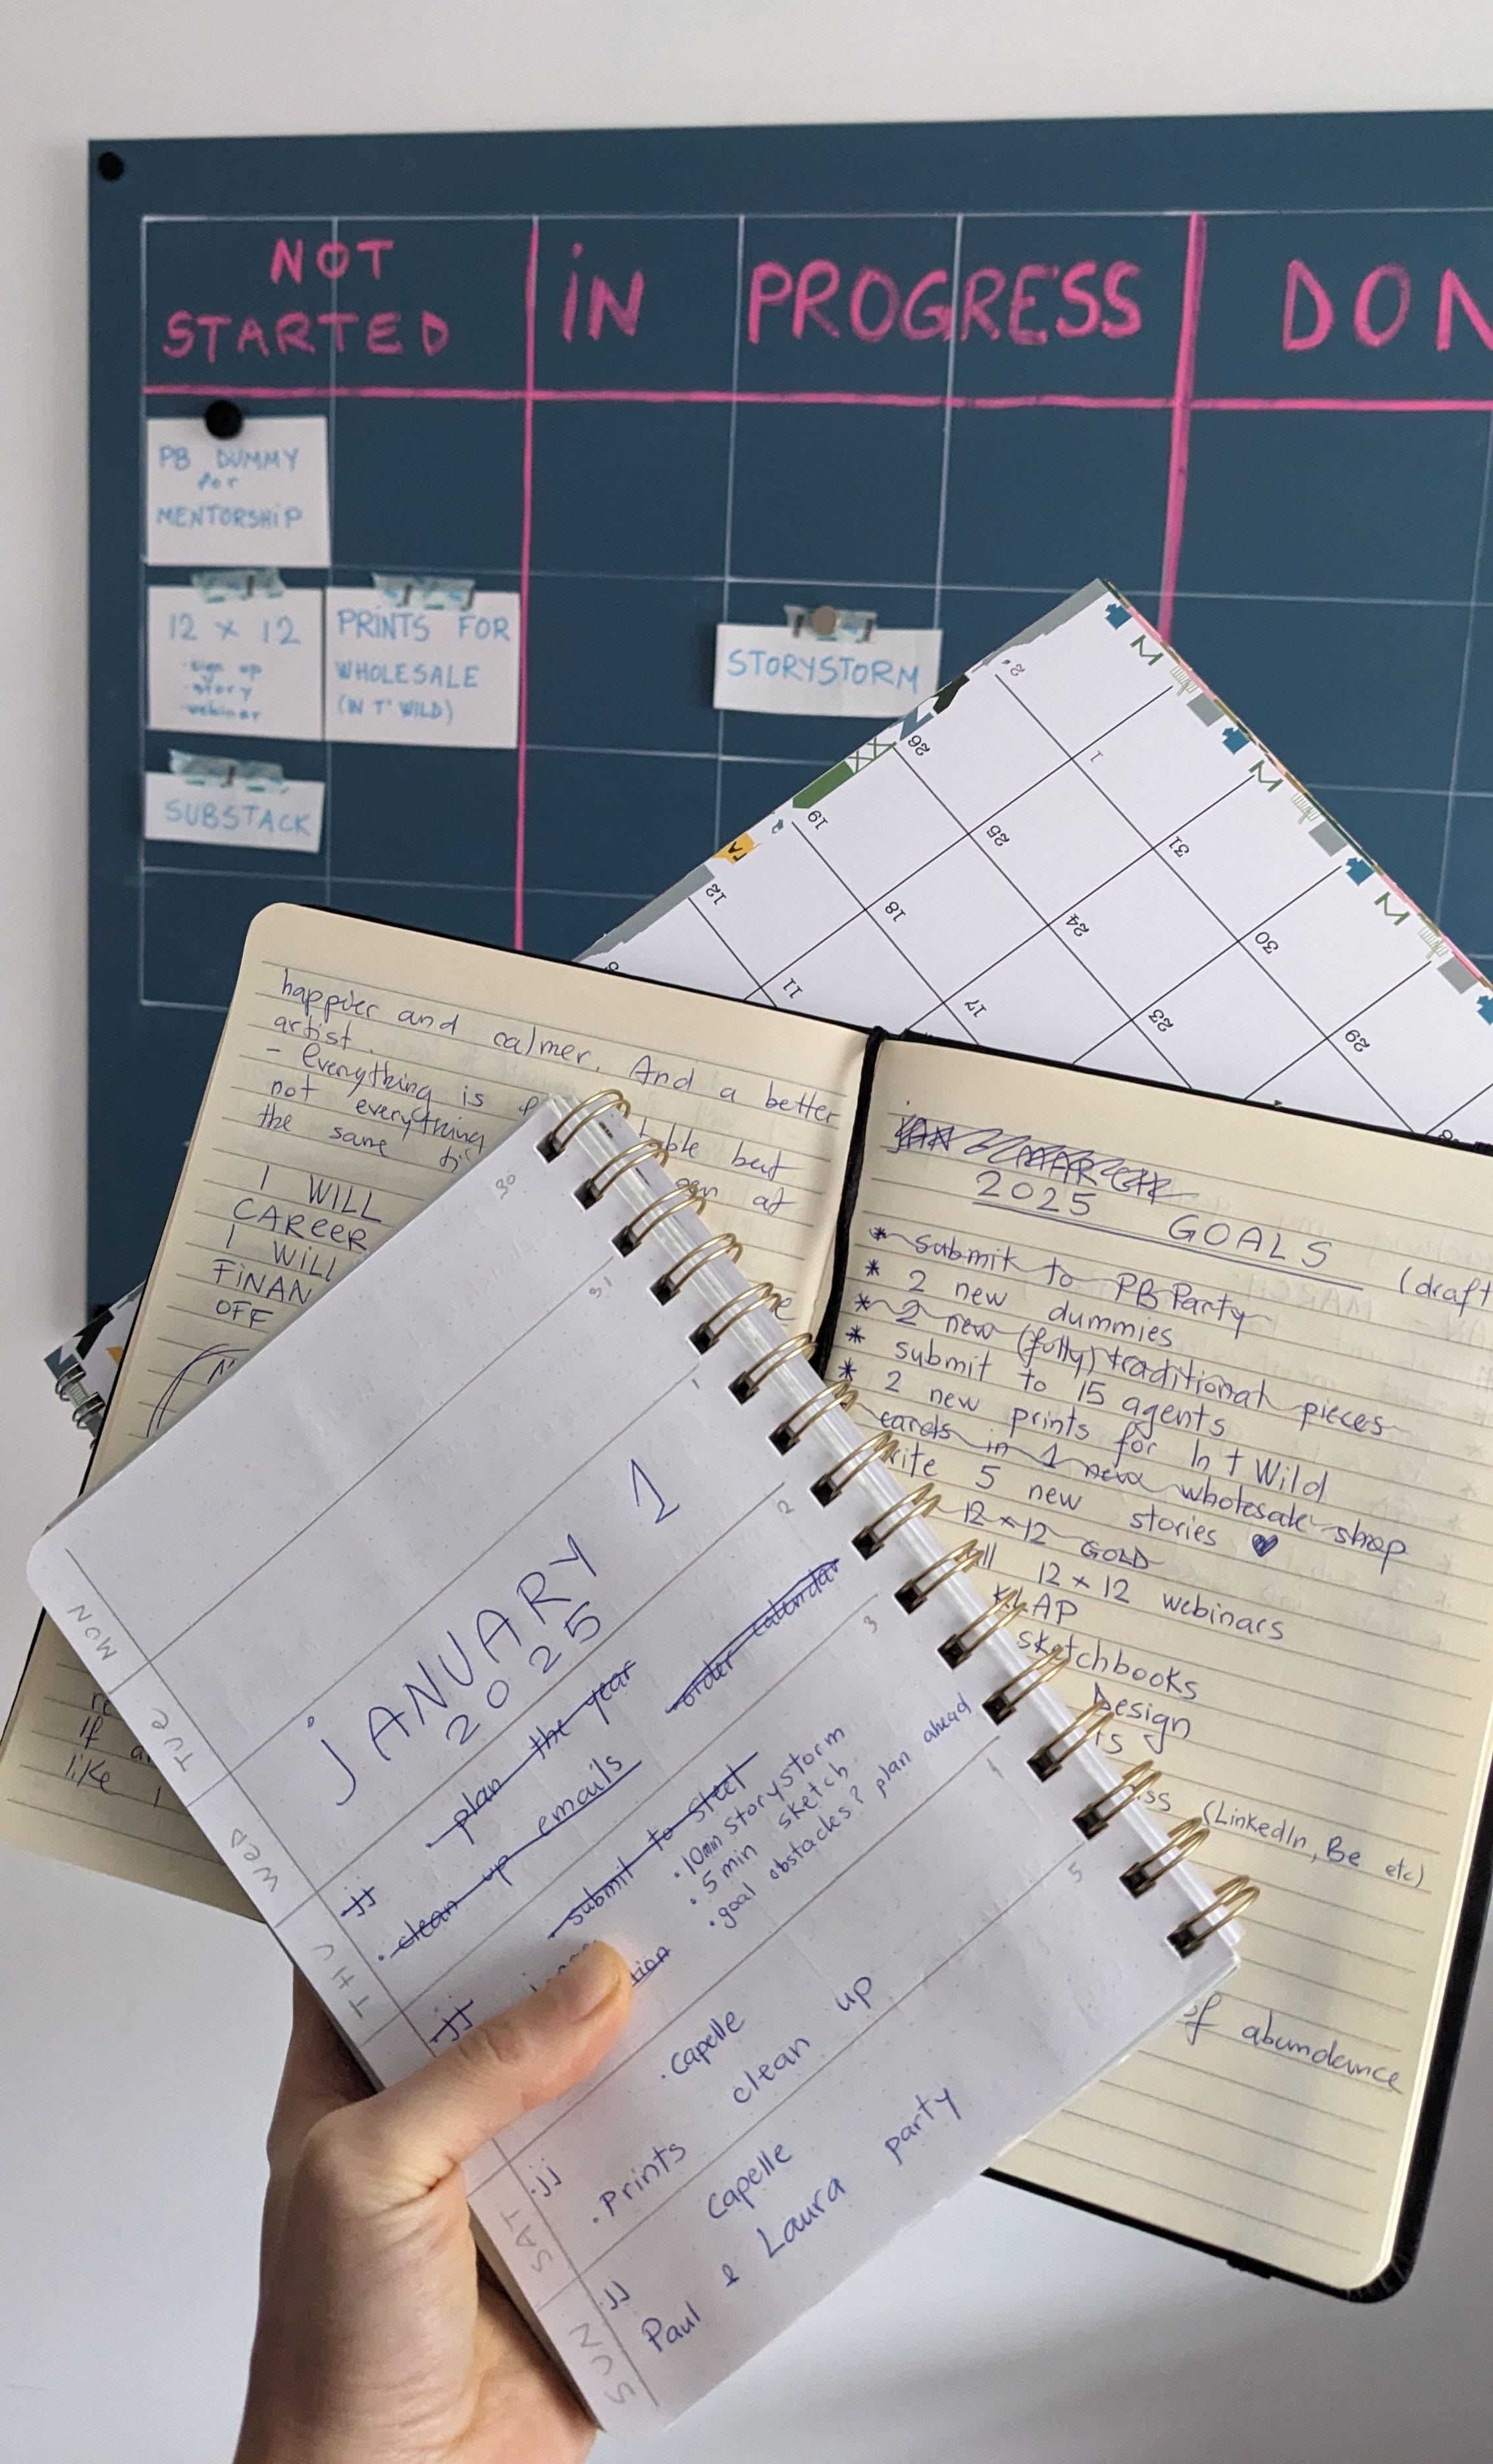 NOT
STARTED
iN PROGRESS
DON
PB DUMMY
for
MENTORSHiP
12 x 12
·sign up
·story
·webinar
PRiNTS FOR
WHOLESALE
(IN T' WiLD)
SUBSTACK
STORYSTORM
26
19
12
1
25
18
11
31
24
17
30
23
29
M
M
M
happier and calmer. And a better
artist.
- Everything is
but
not everything
at
the same
I WILL
CAREER
I WILL
FiNAN
OFF
If
like I
2025 GOALS (draft
* submit to PB Party
* 2 new dummies
* 2 new (fully) traditional pieces
* submit to 15 agents
* 2 new prints for In t Wild
cards in 1 new wholesale shop
5 new stories ♥
12x12 GOLD
12 x 12 webinars
KLAP
sketchbooks
Design
(LinkedIn, Be etc)
of abundance
MON
30
TUE
31
WED
1
jANUARY 1
2025
THU
2
jj
· plan the year
order calendar
· clean up emails
3
jj
submit to Steet
· 10min storystorm
· 5 min sketch
· goal obstacles? plan ahead
SAT
4
·jj
· Capelle
· Prints clean up
SUN
5
·jj
Capelle
Paul & Laura party